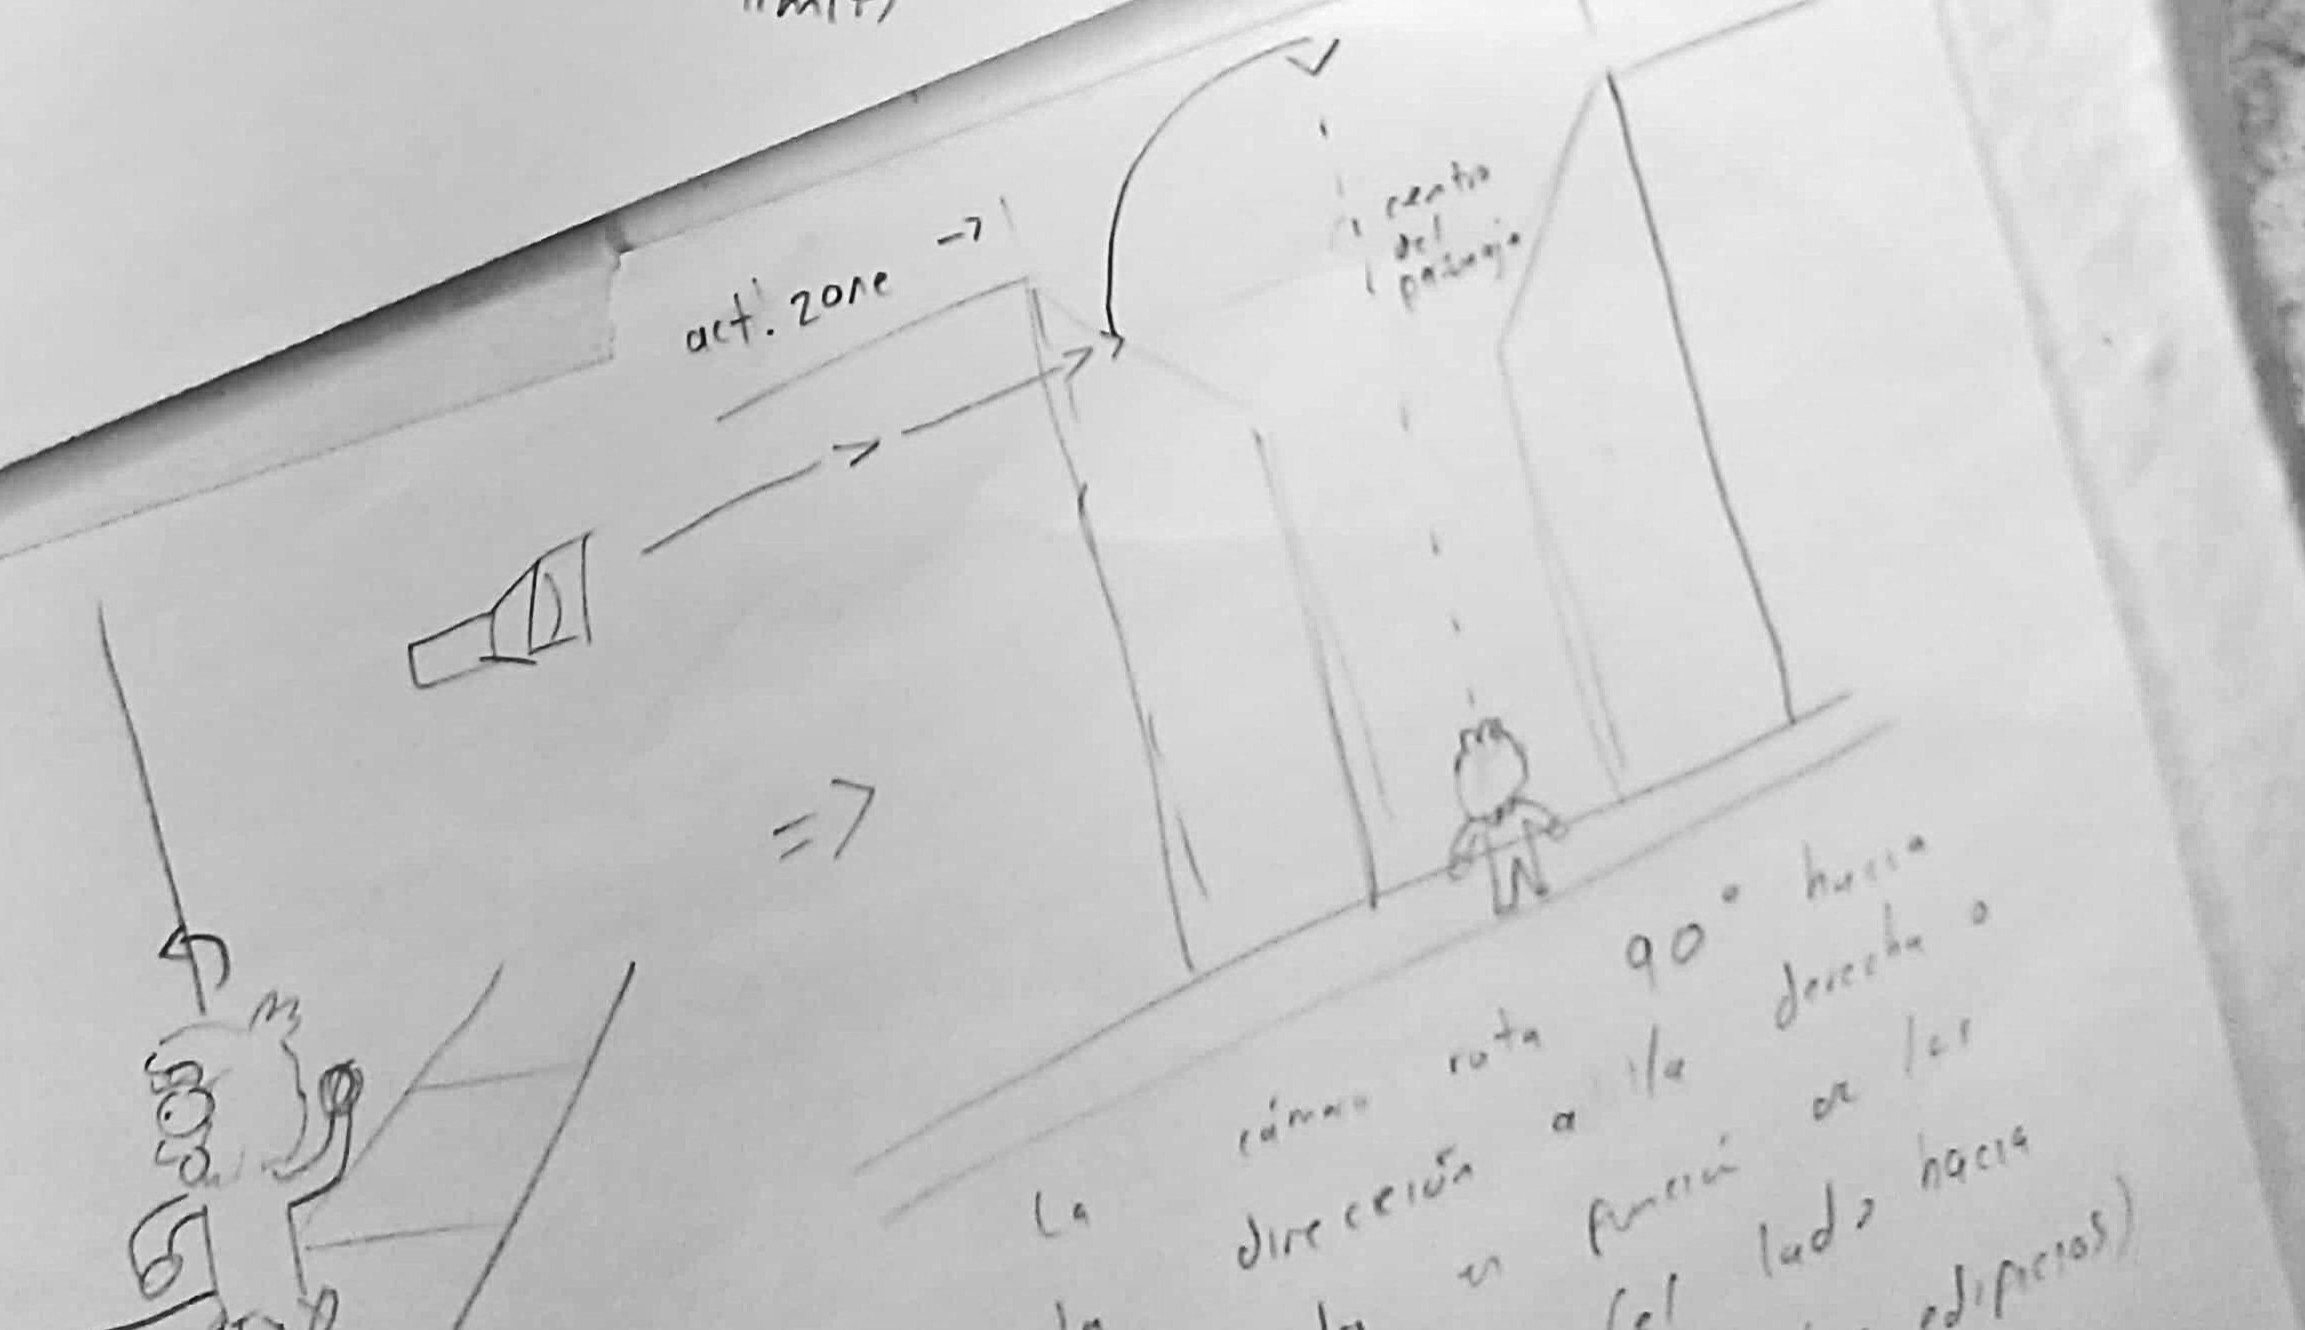 limit)
act. zone ->
centro
del
pasaje
=>
La cámara rota 90° hacia
dirección a la derecha o
en función de las
(el lado hacia
edificios)